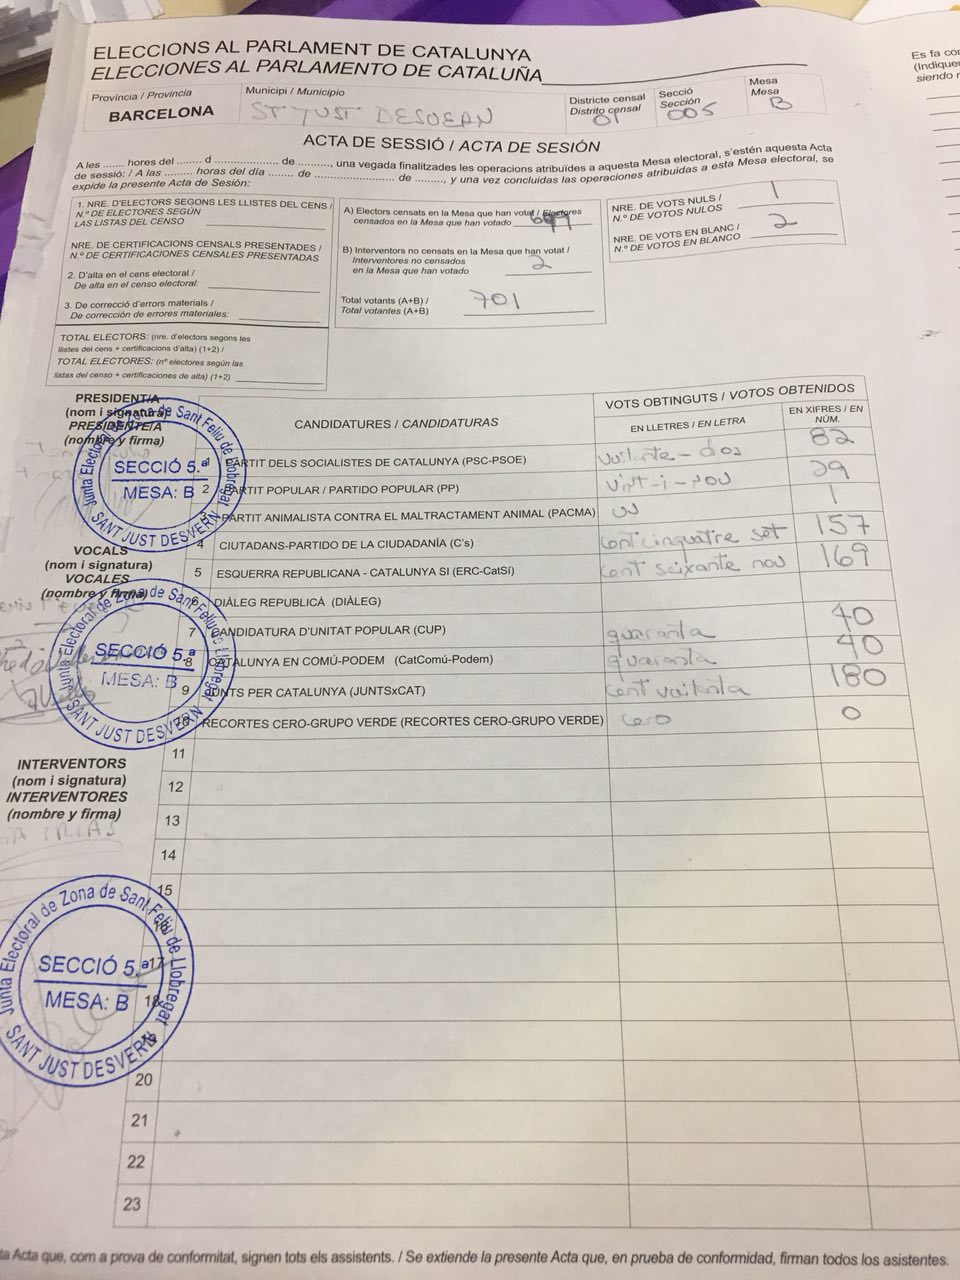 ELECCIONS AL PARLAMENT DE CATALUNYA
ELECCIONES AL PARLAMENTO DE CATALUÑA
Es fa
(Indique
siendo
Província / Provincia
BARCELONA
Municipi / Municipio
ST JUST DESVERN
Districte censal
Distrito censal
01
Secció
Sección
005
Mesa
Mesa
B
ACTA DE SESSIÓ / ACTA DE SESIÓN
A les ....... hores del ....... d ................. de ........., una vegada finalitzades les operacions atribuïdes a aquesta Mesa electoral, s'estén aquesta Acta
de sessió: / A las ........ horas del día ....... de ..................... de ........, y una vez concluidas las operaciones atribuidas a esta Mesa electoral, se
expide la presente Acta de Sesión:
1. NRE. D'ELECTORS SEGONS LES LLISTES DEL CENS /
N.º DE ELECTORES SEGÚN
LAS LISTAS DEL CENSO
NRE. DE CERTIFICACIONS CENSALS PRESENTADES /
N.º DE CERTIFICACIONES CENSALES PRESENTADAS
2. D'alta en el cens electoral /
De alta en el censo electoral:
3. De correcció d'errors materials /
De corrección de errores materiales:
TOTAL ELECTORS: (nre. d'electors segons les
llistes del cens + certificacions d'alta) (1+2) /
TOTAL ELECTORES: (nº electores según las
listas del censo + certificaciones de alta) (1+2)
A) Electors censats en la Mesa que han votat / Electores
censados en la Mesa que han votado 699
B) Interventors no censats en la Mesa que han votat /
Interventores no censados
en la Mesa que han votado 2
Total votants (A+B) /
Total votantes (A+B)
701
NRE. DE VOTS NULS /
N.º DE VOTOS NULOS
1
NRE. DE VOTS EN BLANC /
N.º DE VOTOS EN BLANCO
2
PRESIDENT/A
(nom i signatura)
PRESIDENTE/A
(nombre y firma)
VOCALS
(nom i signatura)
VOCALES
(nombre y firma)
INTERVENTORS
(nom i signatura)
INTERVENTORES
(nombre y firma)
Junta Electoral de Zona de Sant Feliu de Llobregat
SECCIÓ 5.ª
MESA: B
SANT JUST DESVERN
Junta Electoral de Zona de Sant Feliu de Llobregat
SECCIÓ 5.ª
MESA: B
SANT JUST DESVERN
Junta Electoral de Zona de Sant Feliu de Llobregat
SECCIÓ 5.ª
MESA: B
SANT JUST DESVERN
CANDIDATURES / CANDIDATURAS
VOTS OBTINGUTS / VOTOS OBTENIDOS
EN LLETRES / EN LETRA
EN XIFRES / EN
NÚM.
1 PARTIT DELS SOCIALISTES DE CATALUNYA (PSC-PSOE) vuitante-dos 82
2 PARTIT POPULAR / PARTIDO POPULAR (PP) vint-i-nou 29
3 PARTIT ANIMALISTA CONTRA EL MALTRACTAMENT ANIMAL (PACMA) 1
4 CIUTADANS-PARTIDO DE LA CIUDADANÍA (C's) cent cinquatre set 157
5 ESQUERRA REPUBLICANA - CATALUNYA SI (ERC-CatSí) cent seixante nou 169
6 DIÀLEG REPUBLICÀ (DIÀLEG)
7 CANDIDATURA D'UNITAT POPULAR (CUP) quaranta 40
8 CATALUNYA EN COMÚ-PODEM (CatComú-Podem) quaranta 40
9 JUNTS PER CATALUNYA (JUNTSxCAT) cent vuitanta 180
10 RECORTES CERO-GRUPO VERDE (RECORTES CERO-GRUPO VERDE) cero 0
11
12
13
14
15
16
17
18
19
20
21
22
23
ta Acta que, com a prova de conformitat, signen tots els assistents. / Se extiende la presente Acta que, en prueba de conformidad, firman todos los asistentes.